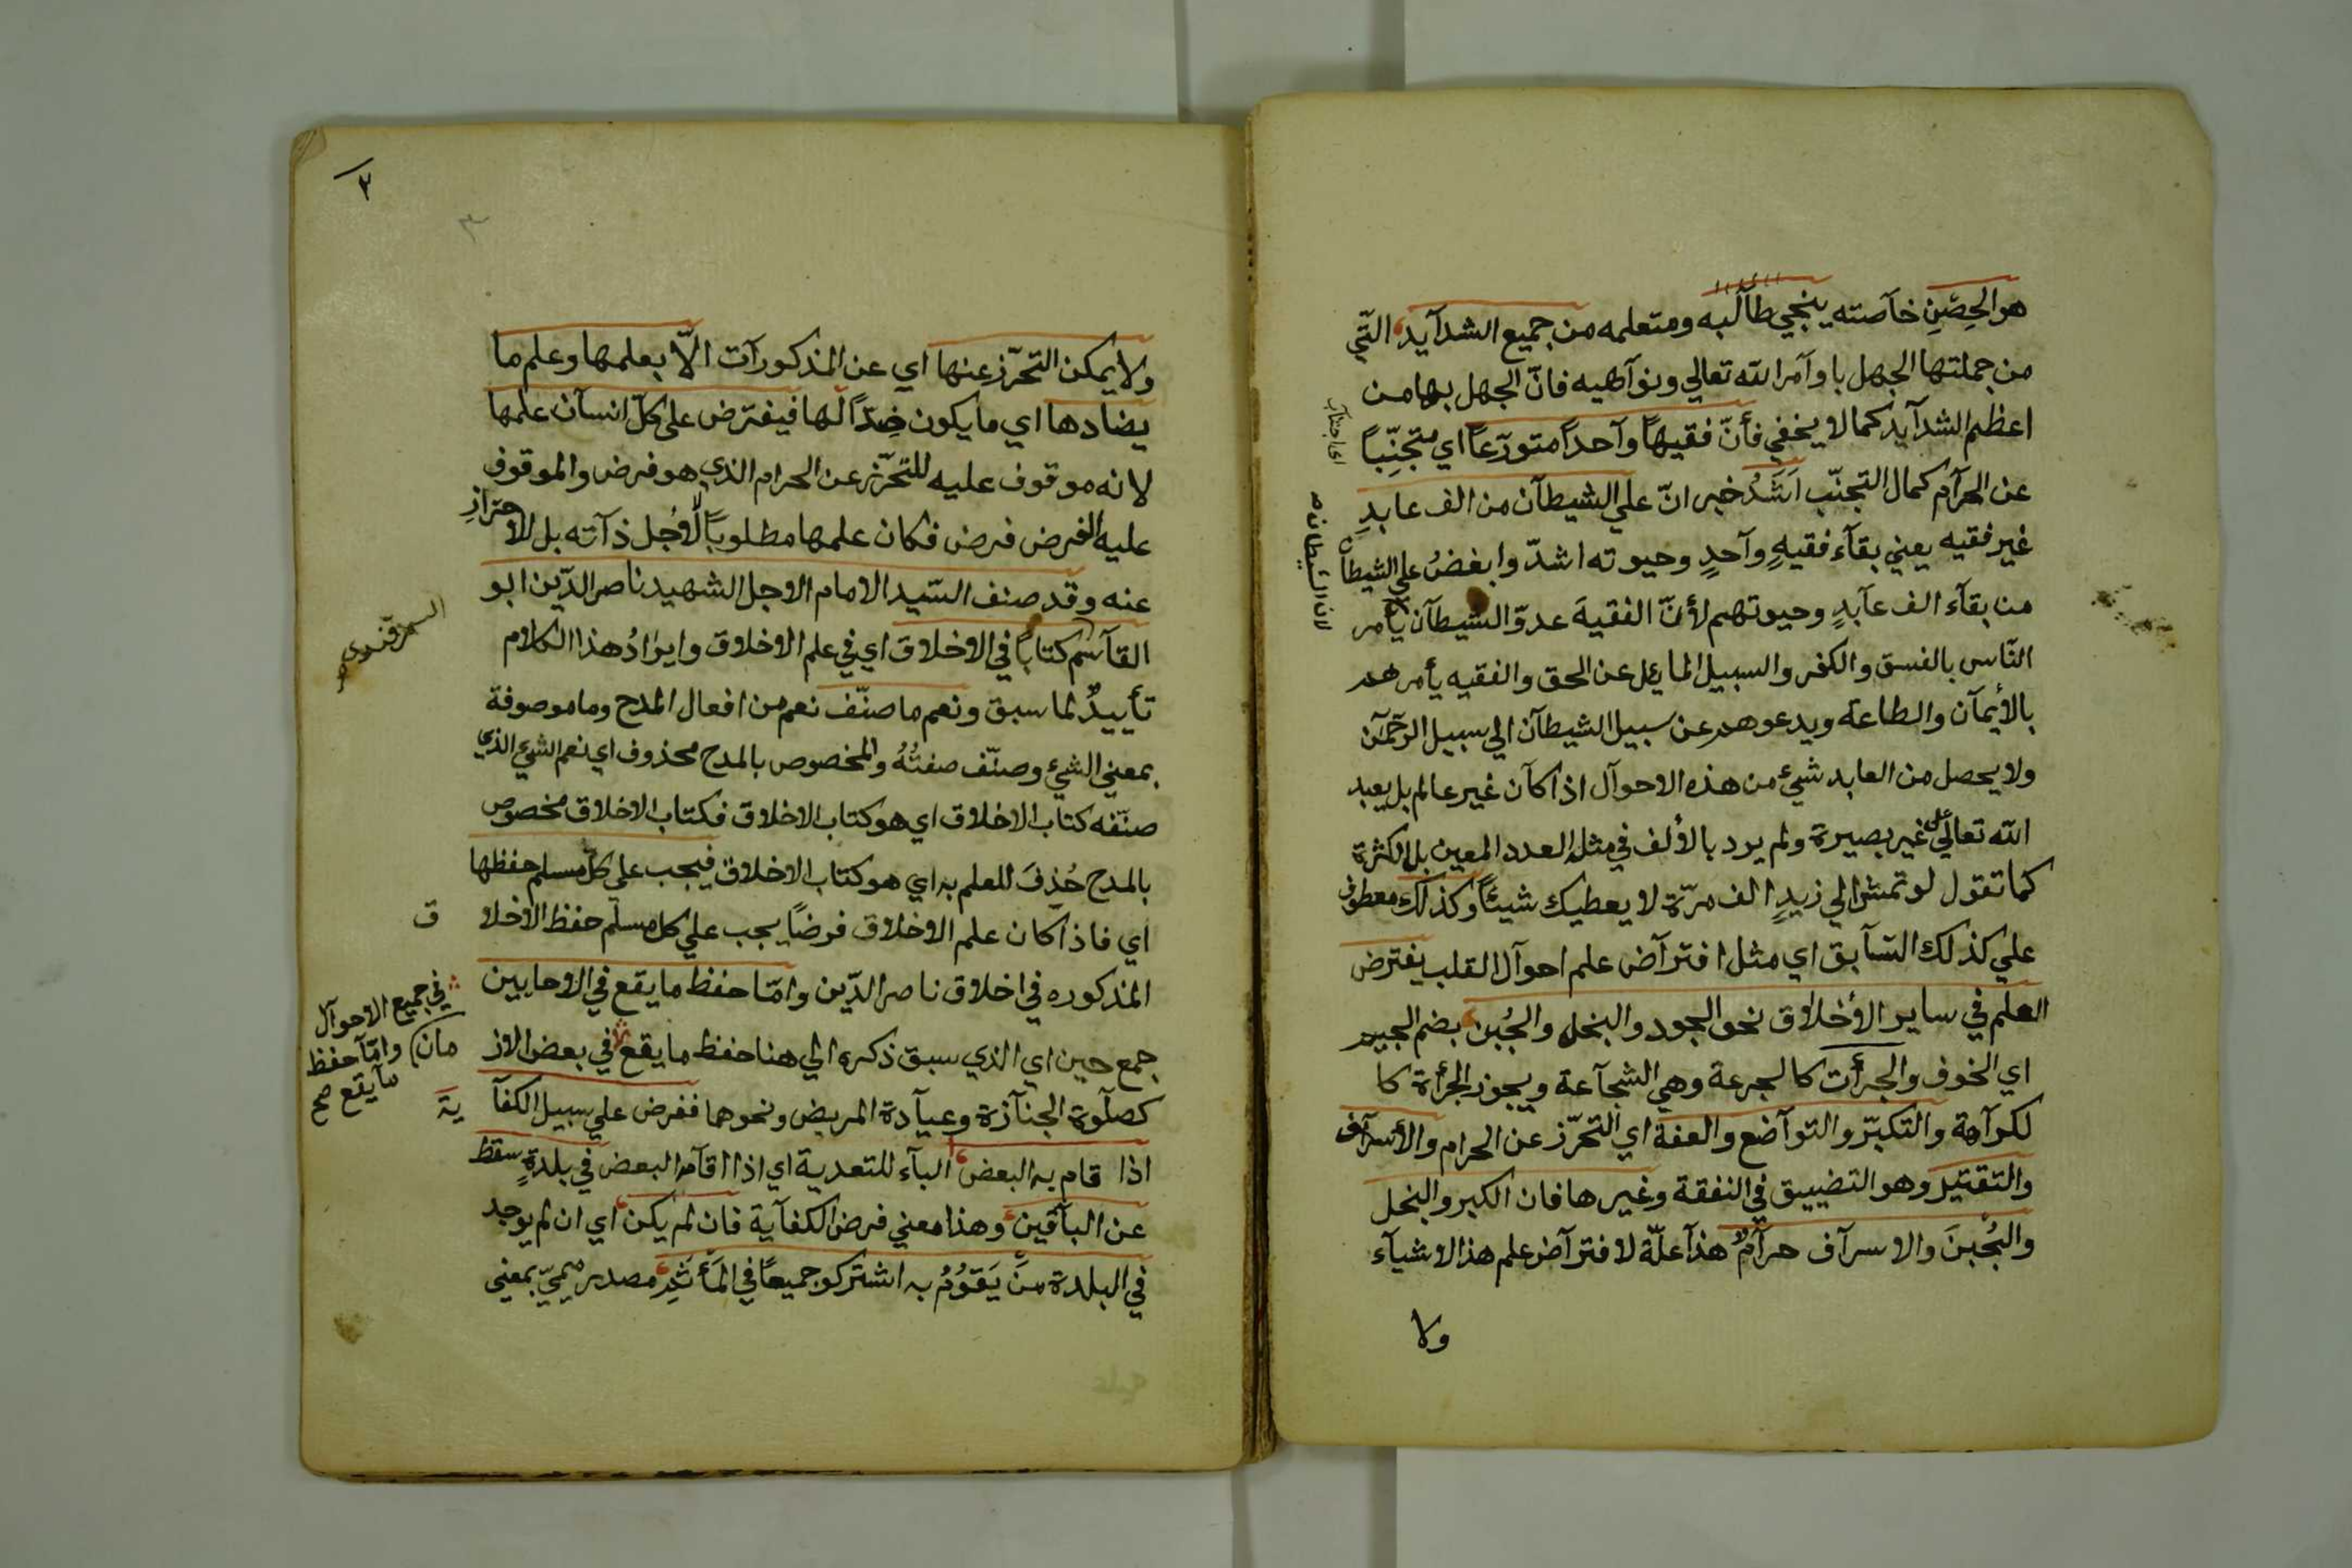 هو الحِصْنِ خآصته ينجي طآلبه ومتعلمه من جميع الشدآيد التّي
من جملتها الجهل باوآمر الله تعالي ونوآهيه فانّ الجهل بها من
اعظم الشدآيد كما لا يخفي فأنّ فقيهاً وآحداً متورّعاً اي متجنِّباً
عن الحرآم كمال التجنّب اَشَدُّ خبر انّ علي الشيطآن من الف عابدِ
غير فقيه يعني بقآء فقيهٍ وآحدٍ وحيوته اشدّ وابغضُ علي الشيطان
من بقآء الف عآبدٍ وحيوتهم لأنّ الفقيهَ عدوّ الشيطآن يأمر
النّاس بالفسق والكفر والسبيل المايل عن الحق والفقيه يأمرهم
بالأيمآن والطاعة ويدعوهم عن سبيل الشيطآن الي سبيل الرحمآن
ولا يحصل من العابد شيئ من هذه الاحوآل اذا كآن غير عالم بل يعبد
الله تعالي علي غير بصيرة ولم يرد بالألف في مثله العدد المعين بل الكثرة
كما تقول لو تمشي الي زيدٍ الف مرّة لا يعطيك شيئاً وكذلك معطوف
علي كذلك السّآبق اي مثل افترآض علم احوآل القلب يفترض
العلم في ساير الأخلاق نحو الجود والبخل والجُبن بضم الجيم
اي الخوف والجرأت كالجرعة وهي الشجآعة ويجوز الجرأة كا
لكرآمة والتكبّر والتوآضع والعفة اي التحرّز عن الحرام والأسرآف
والتقتير وهو التضييق في النفقة وغيرها فان الكبر والبخل
والجُبنَ والاسرآف حرآم هذآ علّة لافترآض علم هذا الاشيآء
ولا
لان الشيطان
٢
٣
ولا يمكن التحرّز عنها اي عن المذكورآت الاّ بعلمها وعلم ما
يضادها اي ما يكون ضِدّاً لها فيفترض علي كلّ انسآن علمها
لانه موقوف عليه للتحرّز عن الحرام الذي هو فرض والموقوف
عليه الفرض فرض فكان علمها مطلوباً لا لأجل ذآته بل للاحترازِ
عنه وقد صنف السّيد الامام الاجل الشهيد ناصر الدّين ابو
القآسم كتاباً في الاخلاق اي في علم الاخلاق وايرَادُ هذا الكلام
السمرقندي
تأييدٌ لما سبق ونعم ما صنّف نعم من افعال المدح وما موصوفة
بمعني الشيئ وصنّف صفتُهُ والمخصوص بالمدح محذوف اي نعم الشيئ الذي
صنّفه كتاب الاخلاق اي هو كتاب الاخلاق فكتاب الاخلاق مخصوص
بالمدح حُذِفَ للعلم به اي هو كتاب الاخلاق فيجب علي كلّ مسلم حفظها
اي فاذا كان علم الاخلاق فرضاً يجب علي كل مسلم حفظ الاخلا
ق
المذكوره في اخلاق ناصر الدّين وامّا حفظ ما يقع في الاحايين
جمع حين اي الذي سبق ذكره الي هنا حفظ ما يقع في بعض الاز
مان
في جميع الاحوآل
وامّا حفظ
مآ يقع صح
كصلوة الجنآزة وعيآدة المريض ونحوهما ففرض علي سبيل الكفآ
يَة
اذا قام به البعض البآء للتعدية اي اذا اقآمه البعض في بلدةٍ سقط
عن البآقين وهذا معني فرض الكفآية فان لم يكن اي ان لم يوجد
في البلدة منَ يَقوُمُ به اشتركو جميعاً في المَأثَمِ مصدر ميميّ بمعني